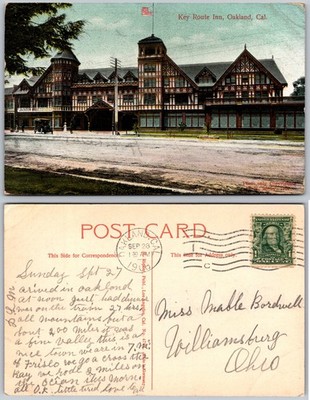 Key Route Inn, Oakland, Cal.
POST CARD.
This Side for Correspondence.
This side is for Address only.
OAKLAND, CAL.
SEP 28
1 30 AM
Sunday Spt 27
arived in oakland
at noon just had dinner
was on the train 27 hrs
all mountains but a
bout 200 miles it was
a fine valley this is a
nice town we are in 7 m.
of Frisco we go a cross the
Bay we rode 2 miles on
the Ocean this morn
all O.K. little tired love
Miss Mable Bordwell
Williamsburg
Ohio